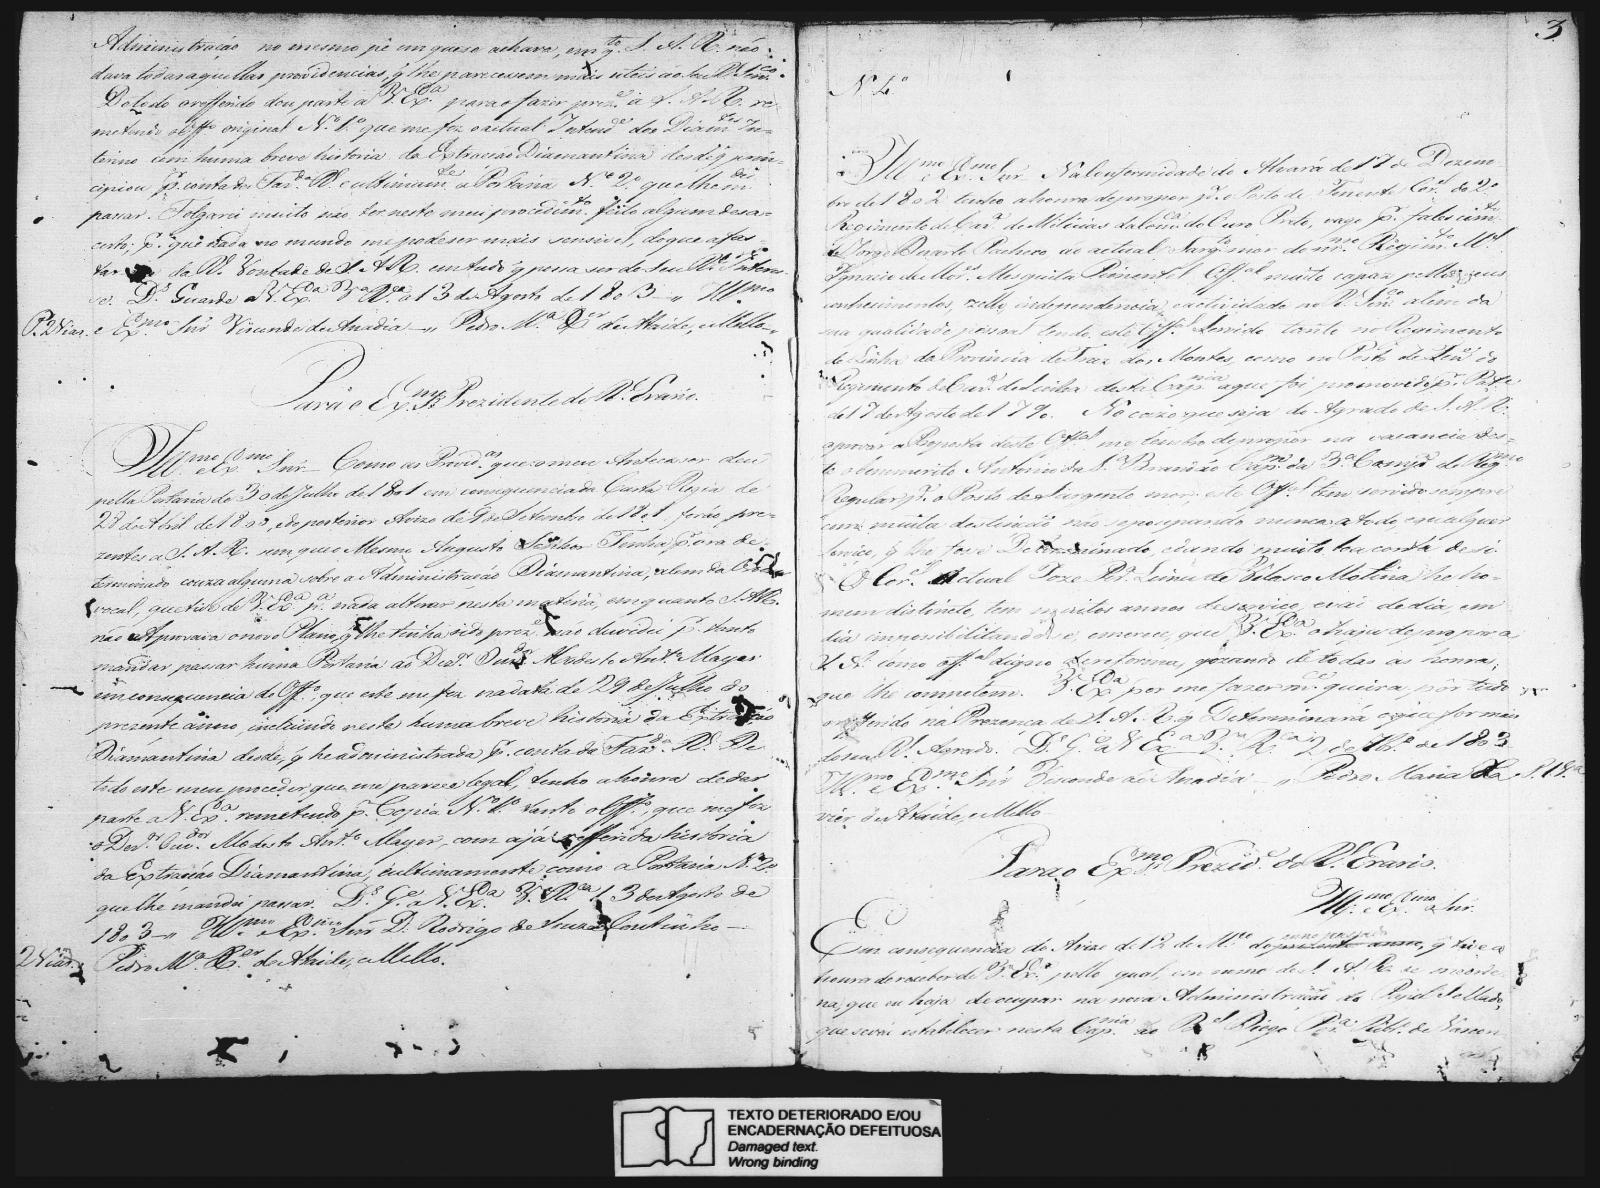 Administração no mesmo pé em que se achava, emq.to S. A. R. não
dava todas aquellas providencias, q̃ lhe parecessem mais uteis ao seu R. Serv.co
De todo o refferido dou parte a V. Ex.ca para o fazer prez.e a S. A. R. re-
metendo o Off.o original N.o 1.o que me fez o actual Intend.e dos Diam.tes In-
terino com huma breve historia da Extracção Diamantina desde q̃ prin-
cipiou p.r conta da Faz.da R. e ultimam.te a Portaria N.o 2.o que lhe mandei
passar. Folgarei muito não ter neste meu procedim.to feito algum desa-
certo, p.r que nada no mundo me pode ser mais sensivel, do que afas-
tar da R. Vontade de S. A. R. em tudo q̃ possa ser do Seu R. Interes-
se. D.s Guarde a V. Ex.ca V.a R.ca 13 de Agosto de 1803 — Ill.mo
P. 2 Vias. e Ex.mo Snr Visconde de Anadia — Pedro M.a X.er de Ataide, e Mello —
Para o Ex.mo Prezidente do R. Erario.
Ill.mo e Ex.mo Snr — Como as Provid.as que o meu Antecessor deu
pella Portaria de 30 de Julho de 1801 em consequencia da Carta Regia de
28 de Abril de 1800, e do posterior Avizo de 9 de Setembro de 1801 forão pre-
zentes a S. A. R. sem que o Mesmo Augusto Senhor Tenha p.r ora de-
terminado couza alguma sobre a Administração Diamantina, alem da Ordem
vocal, que tive de V. Ex.ca p.a nada alterar nesta materia, em quanto S. A. R.
não Aprovava o novo Plano, q̃ lhe tinha sido prez.e não duvidei p.r tanto
mandar passar huma Portaria ao Dez.or Ouv.or Modesto Ant.o Mayer
em consequencia do Off.o que este me fez na data de 29 de Julho do
prezente anno, incluindo neste huma breve historia da Extracção
Diamantina desde, q̃ he administrada p.r conta da Faz.da R. De
todo este meu proceder, que me parece legal, tenho a honra de dar
parte a V. Ex.ca remetendo p.r Copia N.o 1.o tanto o Off.o, que me fez
o Dez.or Ouv.or Modesto Ant.o Mayer, com a já refferida historia
da Extracção Diamantina, e ultimamente como a Portaria N.o 2.o
que lhe mandei passar. D.s G.e a V. Ex.ca V.a R.ca 13 de Agosto de
1803 — Ill.mo e Ex.mo Snr D. Rodrigo de Souza Coutinho —
2 Vias. Pedro M.a X.er de Ataide, e Mello.
3
N. 4.o
Ill.mo e Ex.mo Snr Na Conformidade do Alvará de 17 de Dezem-
bro de 1802 tenho a honra de propor p.a o Posto de Tenente Cor.el do 2.o
Regimento de Cav.a de Milicias da Com.ca do Ouro Preto, vago p.r falescim.to
de Jorge Duarte Pacheco ao actual Sarg.to mor do m.mo Regim.to M.el
Ignacio de Mor.es Mesquita Pimentel Off.al muito capaz pellos seus
conhecimentos, zello, independencia, e actividade no R. Serv.co alem da
sua qualidade pessoal tendo este Off.al servido tanto no Regimento
de Linha da Provincia de Traz dos Montes, como no Posto de Ten.e do
Regimento de Cav.a de Linha desta Cap.nia a que foi promovido p.r Pat.e
de 17 de Agosto de 179 . No cazo que seja do Agrado de S. A. R.
aprovar a Proposta deste Off.al me lembro de propor na vacancia des-
te o benemerito Antonio da S.a Brandão Cap.m da 3.a Comp.a do Reg.mo
Regular p.a o Posto de Sargento mor: este Off.al tem servido sempre
com muita destinção não se poupando nunca a todo, e qualquer
Serviço, q̃ lhe fosse Determinado, e dando muito boa conta de si.
O Cor.el Actual Joze Per.a Lima de Velasco Molina he ho-
mem distincto, tem muitos annos de serviço, e vai de dia, em
dia impossibilitandose, e merece, que V. Ex.ca o haja de propor a
S. R. como Off.al digno de reforma, gozando de todas as honras,
que lhe competem. V. Ex.ca por me fazer m.ce queira, pôr tudo o
refferido na Prezença de S. A. R. q̃ Determinará o que for mais
do seu R. Agrado. D.s G.e a V. Ex.ca V.a R.ca 2 de 7br.o de 1803
Ill.mo e Ex.mo Snr Visconde de Anadia — Pedro Maria Xa-
vier de Ataide, e Mello
Para o Ex.mo Prezid.e do R. Erario.
Ill.mo e Ex.mo Snr.
Em consequencia do Avizo de 12 de M.co do prezente anno, anno passado q̃ tive a
honra de receber de V. Ex.ca pello qual, em nome de S. A. R. se me orde-
na, que eu haja de ocupar na nova Administração do Papel Sellado,
que se vai estabelecer nesta Cap.nia ao B.el Diogo Per.a Rib.o de Vascon
TEXTO DETERIORADO E/OU
ENCADERNAÇÃO DEFEITUOSA
Damaged text.
Wrong binding